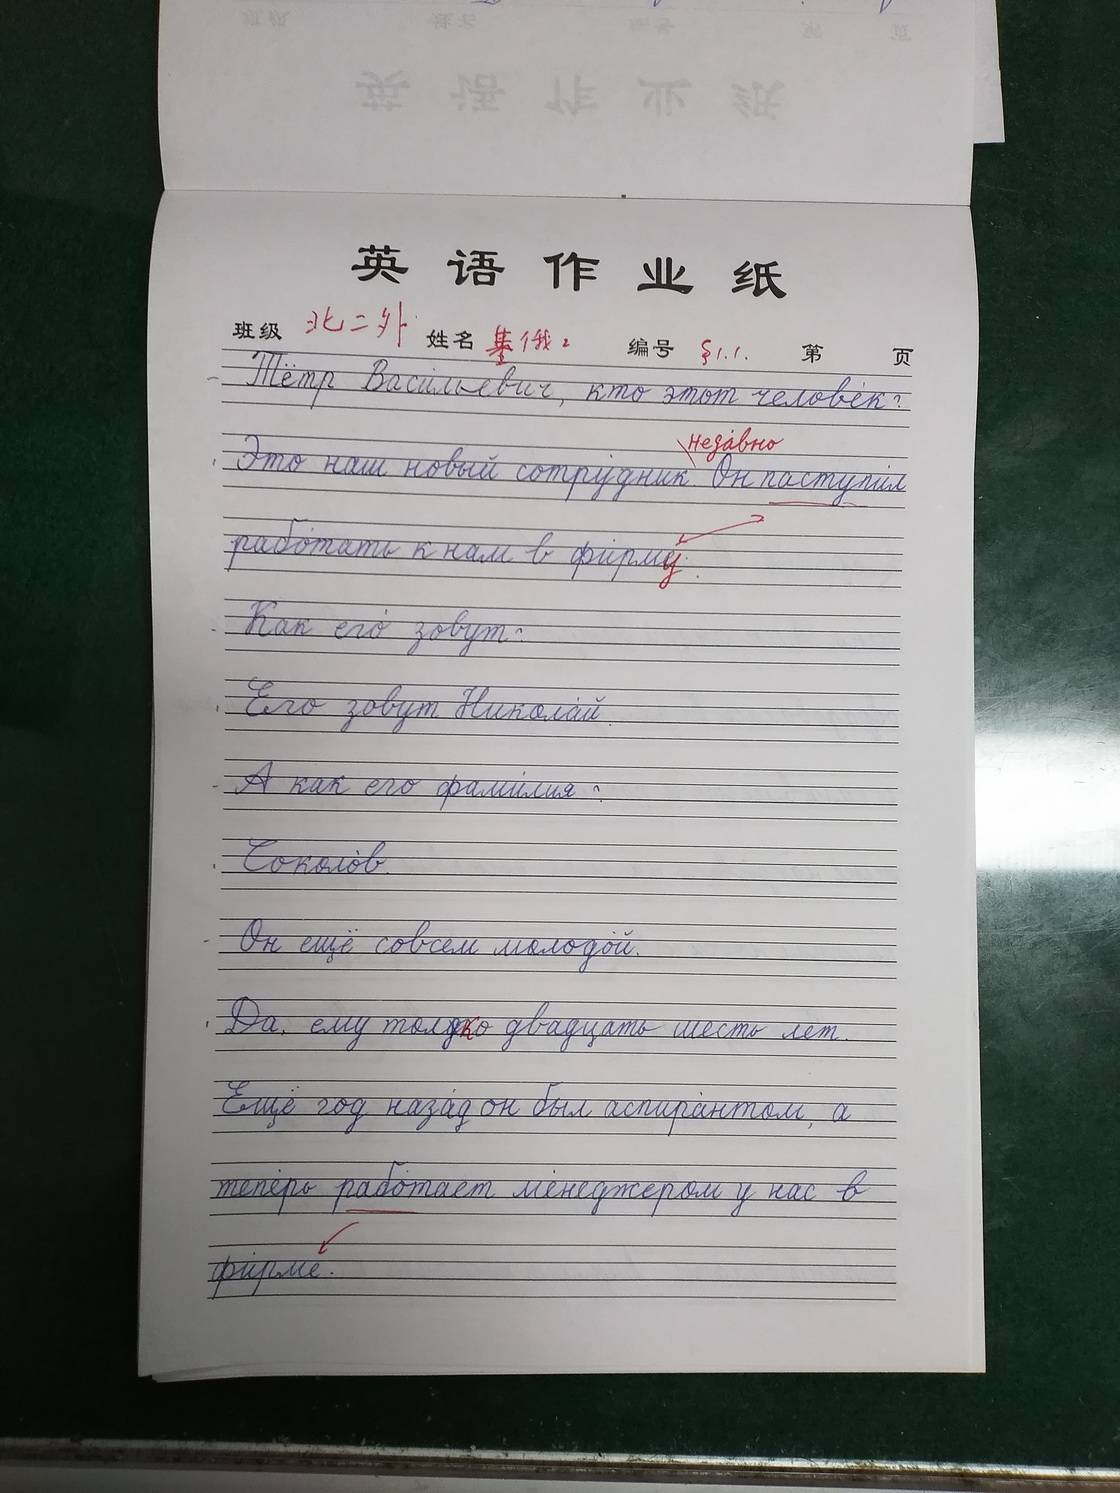 英语作业纸
班级 北二外 姓名 基俄2 编号 §1.1. 第 页
- Пётр Васи́льевич, кто этот челове́к?
неда́вно
. Это наш новый сотру́дник. Он паступи́л
рабо́тать к нам в фи́рму.
- Как его́ зовут?
. Его зовут Никола́й.
- А как его фами́лия?
. Соколо́в.
- Он ещё совсем молодо́й.
. Да, ему только двадцать шесть лет.
Ещё год наза́д он был аспира́нтом, а
тепе́рь рабо́тает ме́неджером у нас в
фи́рме.